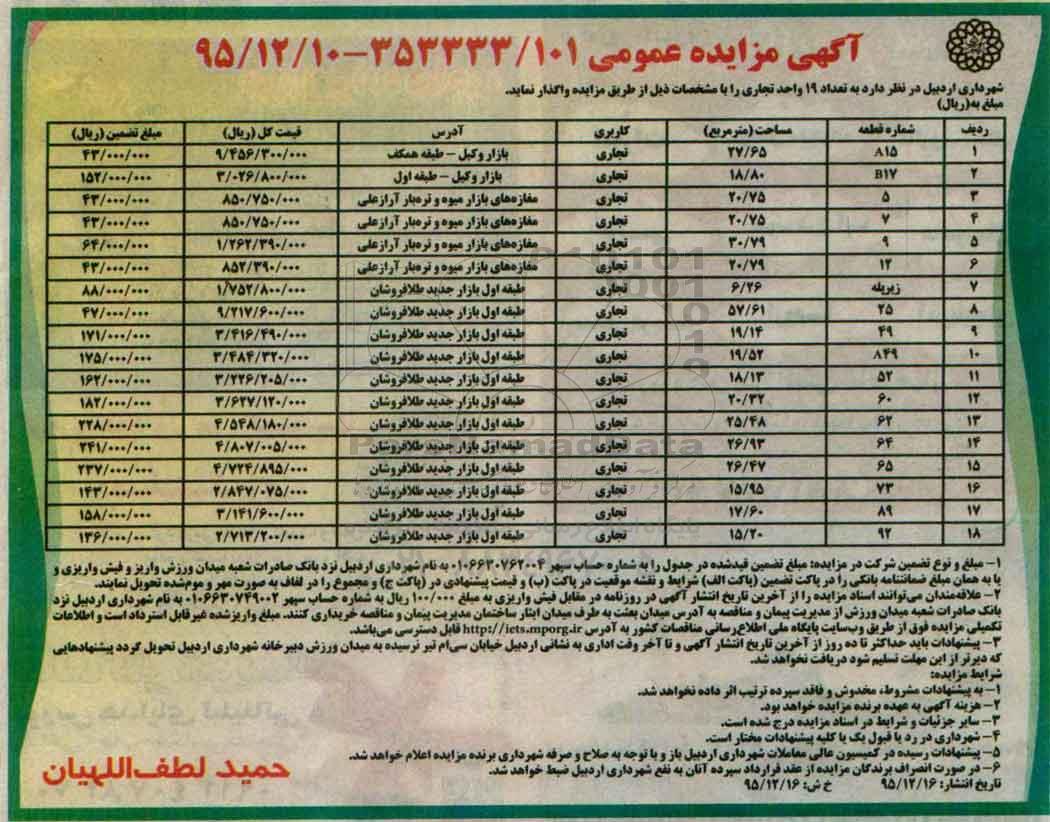 آگهی مزایده عمومی ۳۵۳۳۳۳/۱۰۱-۹۵/۱۲/۱۰
شهرداری اردبیل در نظر دارد به تعداد ۱۹ واحد تجاری را با مشخصات ذیل از طریق مزایده واگذار نماید.
مبلغ به(ریال)
ردیف شماره قطعه مساحت (مترمربع) کاربری آدرس قیمت کل (ریال) مبلغ تضمین (ریال)
۱ A۱۵ ۲۷/۶۵ تجاری بازار وکیل – طبقه همکف ۹/۴۵۶/۳۰۰/۰۰۰ ۴۳/۰۰۰/۰۰۰
۲ B۱۷ ۱۸/۸۰ تجاری بازار وکیل – طبقه اول ۳/۰۲۶/۸۰۰/۰۰۰ ۱۵۲/۰۰۰/۰۰۰
۳ ۵ ۲۰/۷۵ تجاری مغازه‌های بازار میوه و تره‌بار آرازعلی ۸۵۰/۷۵۰/۰۰۰ ۴۳/۰۰۰/۰۰۰
۴ ۷ ۲۰/۷۵ تجاری مغازه‌های بازار میوه و تره‌بار آرازعلی ۸۵۰/۷۵۰/۰۰۰ ۴۳/۰۰۰/۰۰۰
۵ ۹ ۳۰/۷۹ تجاری مغازه‌های بازار میوه و تره‌بار آرازعلی ۱/۲۶۲/۳۹۰/۰۰۰ ۶۴/۰۰۰/۰۰۰
۶ ۱۲ ۲۰/۷۹ تجاری مغازه‌های بازار میوه و تره‌بار آرازعلی ۸۵۲/۳۹۰/۰۰۰ ۴۳/۰۰۰/۰۰۰
۷ زیرپله ۶/۲۶ تجاری طبقه اول بازار جدید طلافروشان ۱/۷۵۲/۸۰۰/۰۰۰ ۸۸/۰۰۰/۰۰۰
۸ ۲۵ ۵۷/۶۱ تجاری طبقه اول بازار جدید طلافروشان ۹/۲۱۷/۶۰۰/۰۰۰ ۴۷/۰۰۰/۰۰۰
۹ ۴۹ ۱۹/۱۴ تجاری طبقه اول بازار جدید طلافروشان ۳/۴۱۶/۴۹۰/۰۰۰ ۱۷۱/۰۰۰/۰۰۰
۱۰ A۴۹ ۱۹/۵۲ تجاری طبقه اول بازار جدید طلافروشان ۳/۴۸۴/۳۲۰/۰۰۰ ۱۷۵/۰۰۰/۰۰۰
۱۱ ۵۲ ۱۸/۱۳ تجاری طبقه اول بازار جدید طلافروشان ۳/۲۲۶/۲۰۵/۰۰۰ ۱۶۲/۰۰۰/۰۰۰
۱۲ ۶۰ ۲۰/۳۲ تجاری طبقه اول بازار جدید طلافروشان ۳/۶۲۷/۱۲۰/۰۰۰ ۱۸۲/۰۰۰/۰۰۰
۱۳ ۶۲ ۲۵/۴۸ تجاری طبقه اول بازار جدید طلافروشان ۴/۵۴۸/۱۸۰/۰۰۰ ۲۲۸/۰۰۰/۰۰۰
۱۴ ۶۴ ۲۶/۹۳ تجاری طبقه اول بازار جدید طلافروشان ۴/۸۰۷/۰۰۵/۰۰۰ ۲۴۱/۰۰۰/۰۰۰
۱۵ ۶۵ ۲۶/۴۷ تجاری طبقه اول بازار جدید طلافروشان ۴/۷۲۴/۸۹۵/۰۰۰ ۲۳۷/۰۰۰/۰۰۰
۱۶ ۷۳ ۱۵/۹۵ تجاری طبقه اول بازار جدید طلافروشان ۲/۸۴۷/۰۷۵/۰۰۰ ۱۴۳/۰۰۰/۰۰۰
۱۷ ۸۹ ۱۷/۶۰ تجاری طبقه اول بازار جدید طلافروشان ۳/۱۴۱/۶۰۰/۰۰۰ ۱۵۸/۰۰۰/۰۰۰
۱۸ ۹۲ ۱۵/۲۰ تجاری طبقه اول بازار جدید طلافروشان ۲/۷۱۳/۲۰۰/۰۰۰ ۱۳۶/۰۰۰/۰۰۰
۱– مبلغ و نوع تضمین شرکت در مزایده: مبلغ تضمین قیدشده در جدول را به شماره حساب سپهر ۰۱۰۶۶۳۰۷۶۲۰۰۴ به نام شهرداری اردبیل نزد بانک صادرات شعبه میدان ورزش واریز و فیش واریزی و
یا به همان مبلغ ضمانتنامه بانکی را در پاکت تضمین (پاکت الف) شرایط و نقشه موقعیت در پاکت (ب) و قیمت پیشنهادی در (پاکت ج) و مجموع را در لفاف به صورت مهر و موم‌شده تحویل نمایند.
۲– علاقه‌مندان می‌توانند اسناد مزایده را از آخرین تاریخ انتشار آگهی در روزنامه در مقابل فیش واریزی به مبلغ ۱۰۰/۰۰۰ ریال به شماره حساب سپهر ۰۱۰۶۶۳۰۷۴۹۰۰۲ به نام شهرداری اردبیل نزد
بانک صادرات شعبه میدان ورزش از مدیریت پیمان و مناقصه به آدرس میدان بعثت به طرف میدان ایثار ساختمان مدیریت پیمان و مناقصه خریداری کنند. مبلغ واریزشده غیرقابل استرداد است و اطلاعات
تکمیلی مزایده فوق از طریق وب‌سایت پایگاه ملی اطلاع‌رسانی مناقصات کشور به آدرس http://iets.mporg.ir قابل دسترسی می‌باشد.
۳– پیشنهادات باید حداکثر تا ده روز از آخرین تاریخ انتشار آگهی و تا آخر وقت اداری به نشانی اردبیل خیابان سی‌ام تیر نرسیده به میدان ورزش دبیرخانه شهرداری اردبیل تحویل گردد پیشنهادهایی
که دیرتر از این مهلت تسلیم شود دریافت نخواهد شد.
شرایط مزایده:
۱– به پیشنهادات مشروط، مخدوش و فاقد سپرده ترتیب اثر داده نخواهد شد.
۲– هزینه آگهی به عهده برنده مزایده خواهد بود.
۳– سایر جزئیات و شرایط در اسناد مزایده درج شده است.
۴– شهرداری در رد یا قبول یک یا کلیه پیشنهادات مختار است.
۵– پیشنهادات رسیده در کمیسیون عالی معاملات شهرداری اردبیل باز و با توجه به صلاح و صرفه شهرداری برنده مزایده اعلام خواهد شد.
۶– در صورت انصراف برندگان مزایده از عقد قرارداد سپرده آنان به نفع شهرداری اردبیل ضبط خواهد شد.
تاریخ انتشار: ۹۵/۱۲/۱۶ خ ش: ۹۵/۱۲/۱۶
حمید لطف‌اللهیان